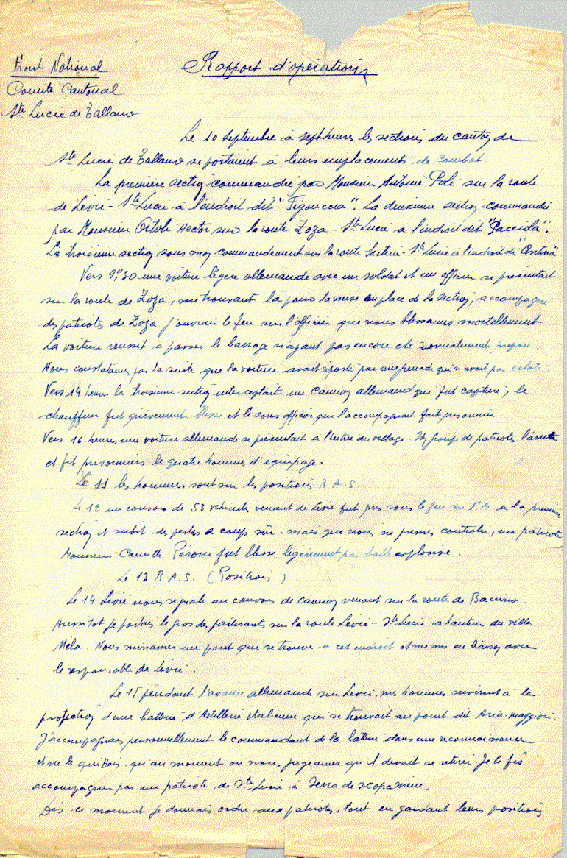 Front National
Comité Cantonal
Ste Lucie de Tallano
Rapport d'opérations
Le 10 septembre à sept heures les sections du canton de
Ste Lucie de Tallano se portaient à leurs emplacements de combat.
La première section commandée par Monsieur Antoine Poli sur la route
de Levie - Ste Lucie à l'endroit dit
La deuxième section commandée
par Monsieur Ortoli Hector sur la route Zoza - Ste Lucie à l'endroit dit
La troisième section sous mon commandement sur la route Sartène - Ste Lucie à l'endroit dit
Vers 9h30 une voiture légère allemande avec un soldat et un officier se présentait
sur la route de Zoza, me trouvant là pour la mise en place de la section, accompagné
des patriotes de Zoza j'ouvris le feu sur l'officier que nous blessames mortellement.
La voiture réussit à passer le barrage n'ayant pas encore été
Nous constatames par la suite que la voiture avait
Vers 14 heures la troisième section interceptait un camion allemand qui fut capturé; le
chauffeur fut grièvement blessé et le sous officier qui l'accompagnait fait prisonnier
Vers 16 heures une voiture allemande se présentait à l'entrée du village. Un groupe de patriotes l'arrêta
et fit prisonniers les quatre hommes d'équipage.
Le 11 les hommes sont sur les positions R.A.S.
Le 12 un convoi de 58 véhicules venant de Levie fut pris sous le feu
de la première
section et subit des pertes à coup sûr, mais que nous ne pumes contrôler, un patriote
Monsieur Camille Perone fut blessé légèrement par balle explosive.
Le 13 R.A.S. (Positions)
Le 14 Levie nous signale un convoi de camions venant sur la route de Bacino.
Aussitôt je portais le gros de partisans, sur la route Levie - Ste Lucie à hauteur du village
Mela. Nous minames un pont qui se trouve à cet endroit et
en liaison avec
le responsable de Levie.
Le 15 pendant l'avance allemande sur Levie, mes hommes servirent à la
protection d'une batterie d'Artillerie Italienne qui se trouvait au point dit Aria-maggiore.
J'accompagnais personnellement le commandant de la batterie dans une reconnaissance
et ne le quittais qu'au moment où nous jugeames qu'il devait se retirer. Je le fis
accompagner par un patriote de Ste Lucie à Serra de Scopamène.
Dès ce moment je donnais ordre aux patriotes, tout en gardant leurs positions